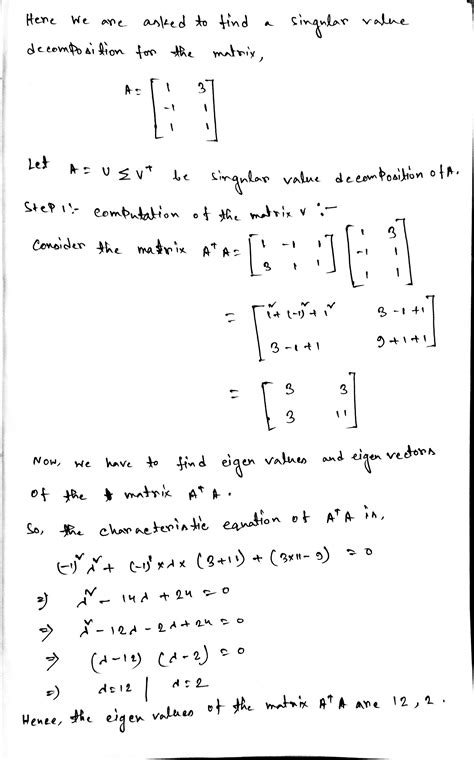 Here we are asked to find a singular value
decomposition for the matrix,
A = [ 1 3
-1 1
1 1 ]
Let A = U Σ V^T be singular value decomposition of A.
Step 1:- computation of the matrix V :-
Consider the matrix A^T A = [ 1 -1 1
3 1 1 ] [ 1 3
-1 1
1 1 ]
= [ 1² + (-1)² + 1² 3 - 1 + 1
3 - 1 + 1 9 + 1 + 1 ]
= [ 3 3
3 11 ]
Now, we have to find eigen values and eigen vectors
of the matrix A^T A.
So, the characteristic equation of A^T A is,
(-1)² λ² + (-1)¹ × λ × (3+11) + (3×11 - 9) = 0
⇒ λ² - 14λ + 24 = 0
⇒ λ² - 12λ - 2λ + 24 = 0
⇒ (λ-12) (λ-2) = 0
⇒ λ = 12 | λ = 2
Hence, the eigen values of the matrix A^T A are 12, 2.